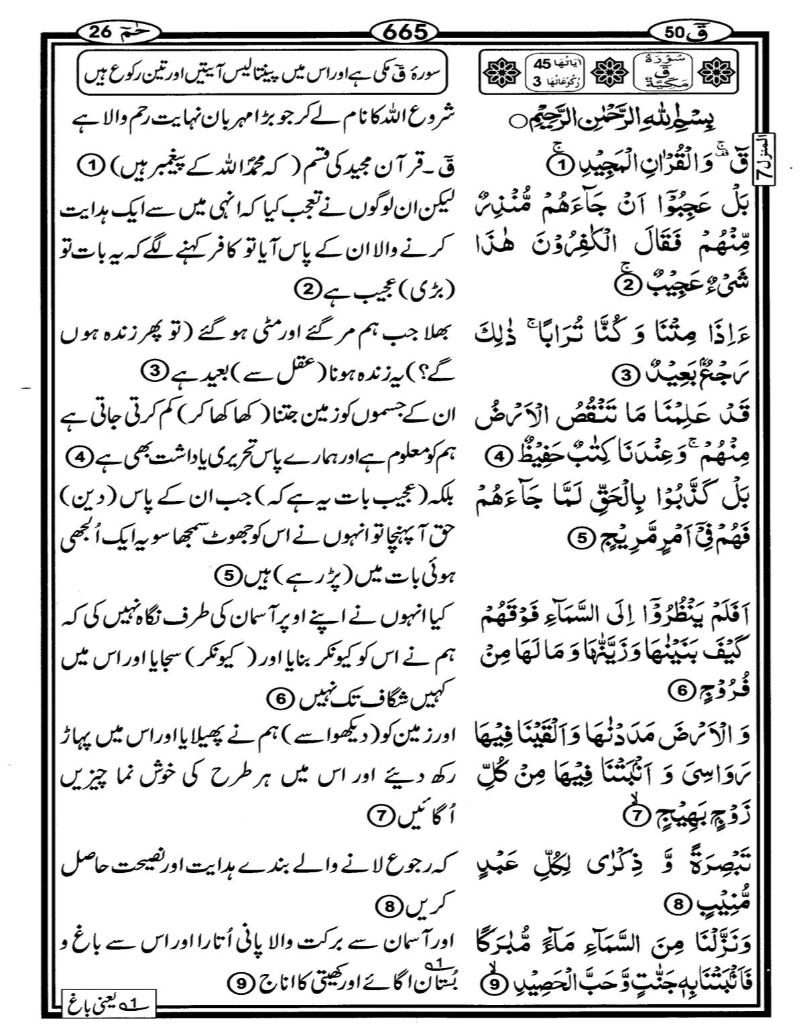 ق 50
665
حٰمٓ 26
سُوْرَةُ قٓ مَكِّيَّةٌ
اٰیَاتُهَا 45
رُكُوْعَاتُهَا 3
سورۂ قٓ مکی ہے اور اس میں پینتالیس آیتیں اور تین رکوع ہیں
المنزل 7
بِسْمِ اللهِ الرَّحْمٰنِ الرَّحِيْمِ ○
قٓ ۚ وَالْقُرْاٰنِ الْمَجِيْدِ ۚ ①
بَلْ عَجِبُوْٓا اَنْ جَآءَهُمْ مُّنْذِرٌ
مِّنْهُمْ فَقَالَ الْكٰفِرُوْنَ هٰذَا
شَىْءٌ عَجِيْبٌ ۚ ②
ءَاِذَا مِتْنَا وَ كُنَّا تُرَابًا ۚ ذٰلِكَ
رَجْعٌۢ بَعِيْدٌ ③
قَدْ عَلِمْنَا مَا تَنْقُصُ الْاَرْضُ
مِنْهُمْ ۚ وَعِنْدَنَا كِتٰبٌ حَفِيْظٌ ④
بَلْ كَذَّبُوْا بِالْحَقِّ لَمَّا جَآءَهُمْ
فَهُمْ فِىْٓ اَمْرٍ مَّرِيْجٍ ⑤
اَفَلَمْ يَنْظُرُوْٓا اِلَى السَّمَآءِ فَوْقَهُمْ
كَيْفَ بَنَيْنٰهَا وَزَيَّنّٰهَا وَمَا لَهَا مِنْ
فُرُوْجٍ ⑥
وَ الْاَرْضَ مَدَدْنٰهَا وَاَلْقَيْنَا فِيْهَا
رَوَاسِىَ وَ اَنْۢبَتْنَا فِيْهَا مِنْ كُلِّ
زَوْجٍۢ بَهِيْجٍ ۙ ⑦
تَبْصِرَةً وَّ ذِكْرٰى لِكُلِّ عَبْدٍ
مُّنِيْبٍ ⑧
وَنَزَّلْنَا مِنَ السَّمَآءِ مَآءً مُّبٰرَكًا
فَاَنْۢبَتْنَا بِهٖ جَنّٰتٍ وَّحَبَّ الْحَصِيْدِ ۙ ⑨
شروع اللہ کا نام لے کر جو بڑا مہربان نہایت رحم والا ہے
قٓ۔ قرآن مجید کی قسم (کہ محمدؐ اللہ کے پیغمبر ہیں) ①
لیکن ان لوگوں نے تعجب کیا کہ انہی میں سے ایک ہدایت
کرنے والا ان کے پاس آیا تو کافر کہنے لگے کہ یہ بات تو
(بڑی) عجیب ہے ②
بھلا جب ہم مر گئے اور مٹی ہو گئے (تو پھر زندہ ہوں
گے؟) یہ زندہ ہونا (عقل سے) بعید ہے ③
ان کے جسموں کو زمین جتنا (کھا کھا کر) کم کرتی جاتی ہے
ہم کو معلوم ہے اور ہمارے پاس تحریری یاداشت بھی ہے ④
بلکہ (عجیب بات یہ ہے کہ) جب ان کے پاس (دین)
حق آ پہنچا تو انہوں نے اس کو جھوٹ سمجھا سو یہ ایک اُلجھی
ہوئی بات میں (پڑ رہے) ہیں ⑤
کیا انہوں نے اپنے اوپر آسمان کی طرف نگاہ نہیں کی کہ
ہم نے اس کو کیونکر بنایا اور (کیونکر) سجایا اور اس میں
کہیں شگاف تک نہیں ⑥
اور زمین کو (دیکھو اسے) ہم نے پھیلایا اور اس میں پہاڑ
رکھ دیئے اور اس میں ہر طرح کی خوش نما چیزیں
اُگائیں ⑦
کہ رجوع لانے والے بندے ہدایت اور نصیحت حاصل
کریں ⑧
اور آسمان سے برکت والا پانی اُتارا اور اس سے باغ و
بُستان ؎1 اگائے اور کھیتی کا اناج ⑨
؎1 یعنی باغ